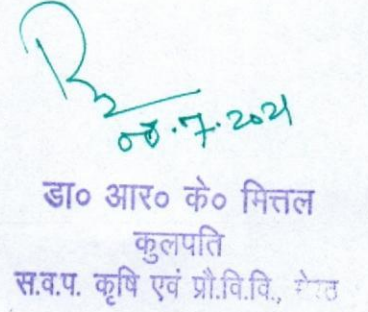 08.7.2021
डा० आर० के० मित्तल
कुलपति
स.व.प. कृषि एवं प्रौ.वि.वि., मेरठ